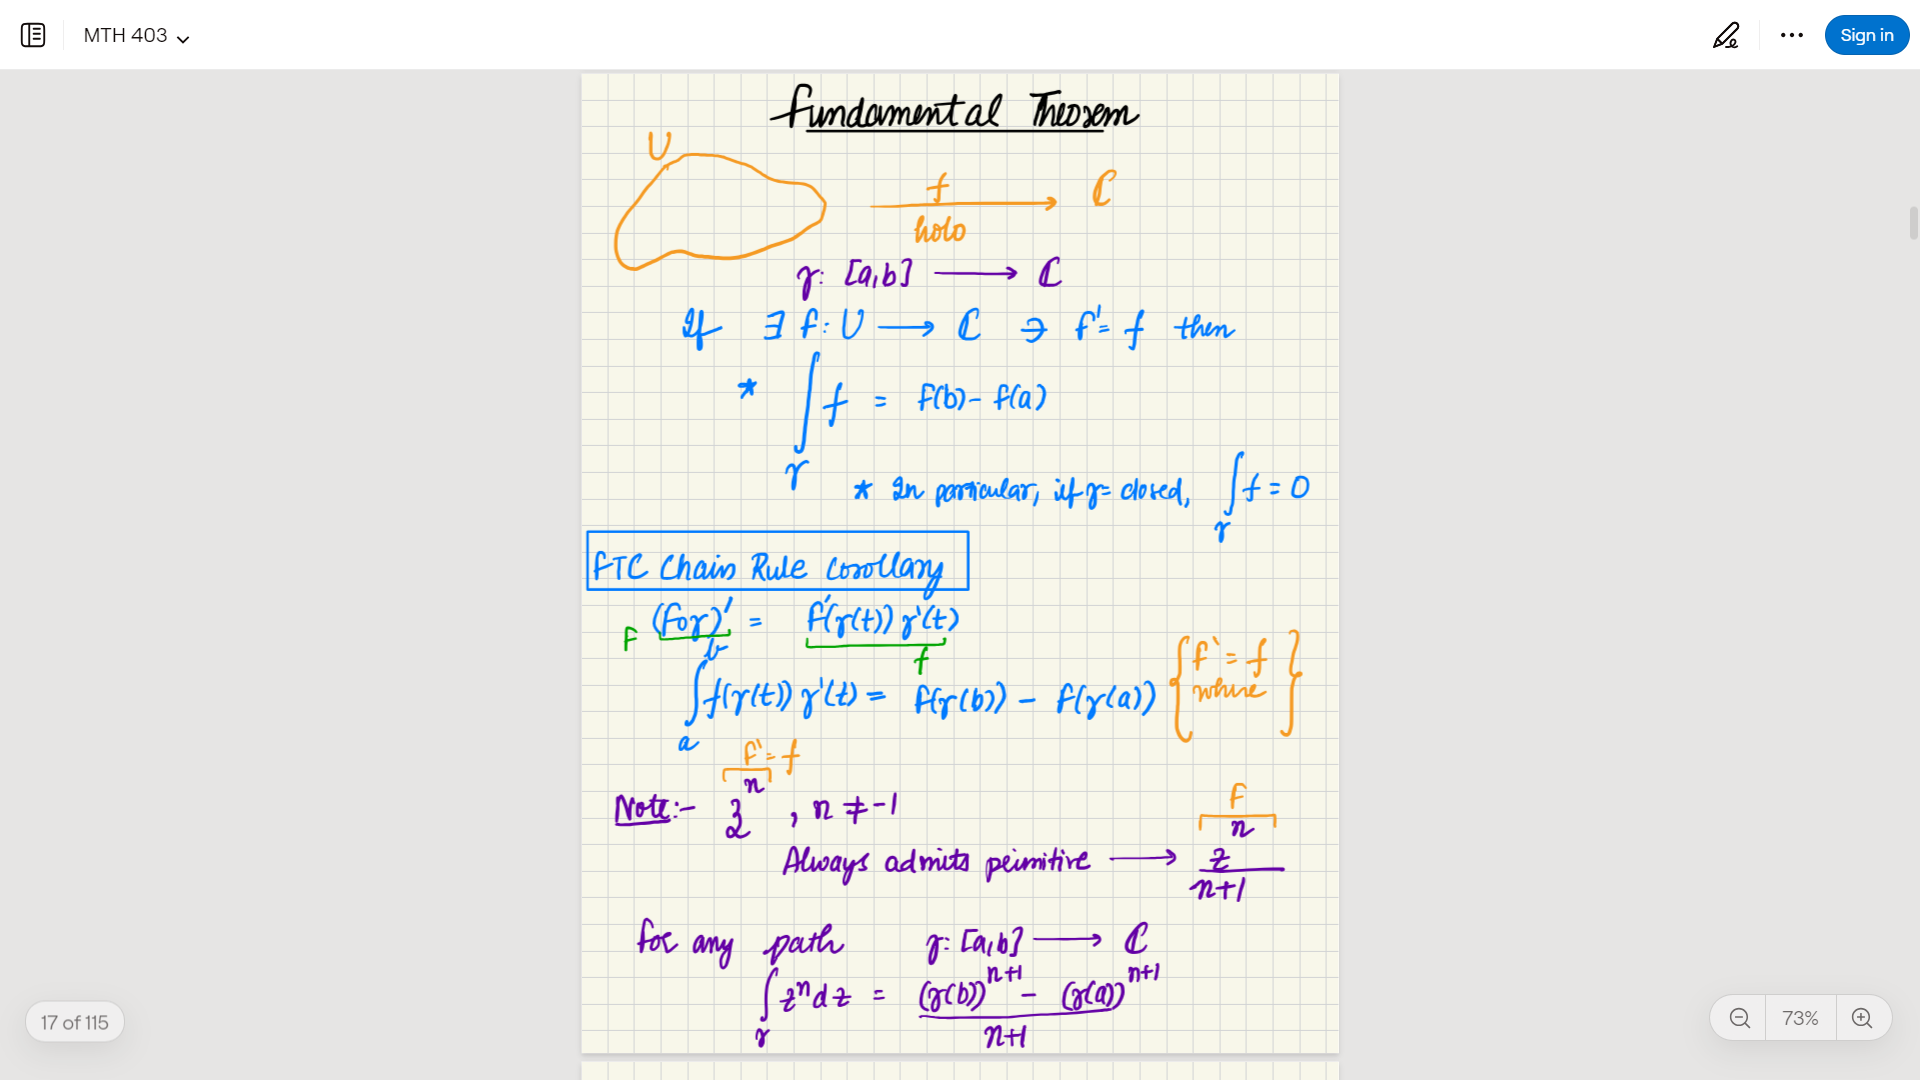 MTH 403
Sign in
Fundamental Theorem
U
f
holo
ℂ
γ: [a,b] ⟶ ℂ
If ∃ F: U ⟶ ℂ ∋ F' = f then
* ∫_γ f = F(b) - F(a)
* In particular, if γ = closed, ∫_γ f = 0
FTC Chain Rule Corollary
F (Foγ)' = F'(γ(t)) γ'(t)
f
∫_a^b f(γ(t)) γ'(t) = F(γ(b)) - F(γ(a)) { F' = f where }
F' = f
Note:- z^n, n ≠ -1
F
Always admits primitive ⟶ z^n / n+1
for any path γ: [a,b] ⟶ ℂ
∫_γ z^n dz = (γ(b))^{n+1} - (γ(a))^{n+1} / n+1
17 of 115
73%